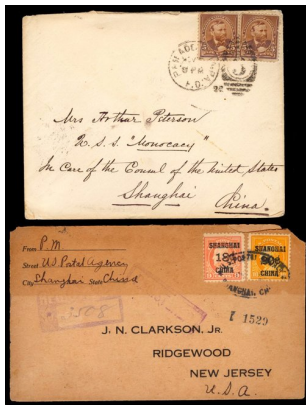 PHILADE
P.D.
Mrs Arthur Peterson
U.S.S. "Monocacy"
In Care of the Consul of the United States
Shanghai
China.
From P.M
Street U.S. Postal Agency
City Shanghai State China
SHANGHAI
CHINA
SHANGHAI
CHINA
SHANGHAI, CHI
2508
1529
J. N. CLARKSON, JR.
RIDGEWOOD
NEW JERSEY
U.S.A.